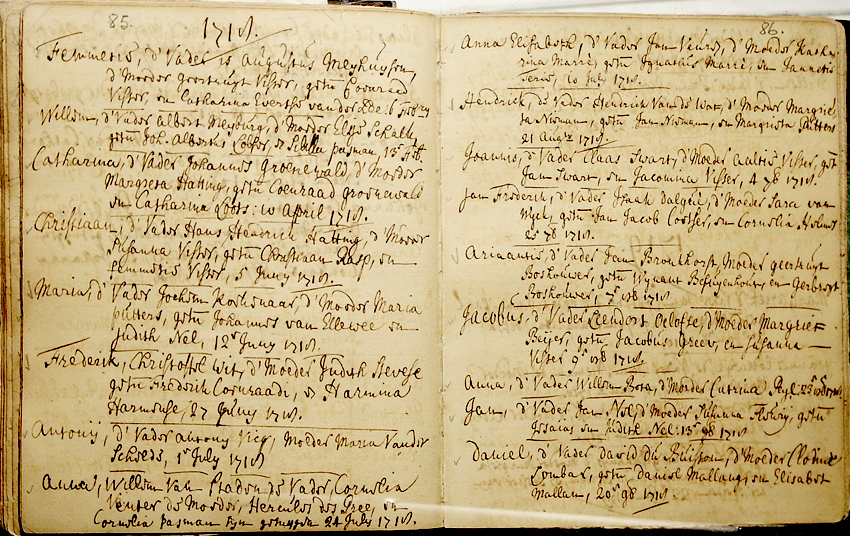 85.
1718.
Femmetie, d' Vader is Augustus Meyhuysen,
d' Moeder Geertruyt Visser, getu Coenraad
Visser, en Catharina Everthse van der
Willem, d' Vader Albert Meyburg, d' Moeder Elsje Schalk,
getu Joh. Alberths Loefer, & Sibilla pasman, 16 Feb.
Catharina, d' Vader Johannes Groenewald, d' Moeder
Margreta Hatting, getu Coenraad groenewald
en Catharina Loots. 10 April 1718.
Christiaan, d' Vader Hans Hendrik Hatting, d' Moeder
Susanna Visser, getu Christiaan Rasp, en
femmetie Visser, 5 Juny 1718.
Maria, d' Vader Jochem Koekemaar, d' Moeder Maria
putters, getu Johannes van Ellewee en
Judith Nel, 12 Juny 1718.
Frederik, Christoffel wit, d' Moeder Judith Steveße
getu Frederik Coenraadi, & Harmina
Harmense, 27 Juny 1718.
Antonij, d' Vader Antony Vicq, Moeder Maria Vander
July 1718
Anna, Willem Van Staden de Vader, Cornelia
Venter de Moeder, Hercules des Pree, en
Cornelia pasman syn getuygen 24 July 1718.
86.
Anna Elisabeth, d' Vader Jan Veurij, d' Moeder Katha
rina Marré, getu Ignatius Marré, en Jannetie
10 July 1718.
Hendrick, de Vader Hendrick Van de Wat, d' Moeder Margrie
ta Nieman, getu Jan Nieman, en Margrieta Putters
21 Aug: 1718.
Joannis, d' Vader Claas Swart, d' Moeder Aaltie Visser, get
Jan Swart, en Jacomina Visser, 4 7b 1718.
Jan Frederik, d' Vader Isaak Dalgue, d' Moeder Sara van
Wyk, getu Jan Jacob Coetser, en Cornelia Helms
25 7b 1718.
Ariaantie, d' Vader Jan Bronkhorst, Moeder geertruyt
Boshouwer, getu Wynant Bezuyenhout, en Gerbregt
Boshouwer, 1718
Jacobus, d' Vader Leendert Oelofse, d' Moeder Margriet
getu Jacobus Greev, en Susanna
Visser 9 1718.
Anna, d' Vader Willem d' Moeder Catrina
Jan, d' Vader Jan Nel, d' Moeder Susanna getu
Jesaias en Judith Nel: 13 1718
Daniel, d' Vader david du Buisson, d' Moeder Claudie
Lombar, getu Daniel Mallang, en Elisabet
Mallan, 20 9b 1718.